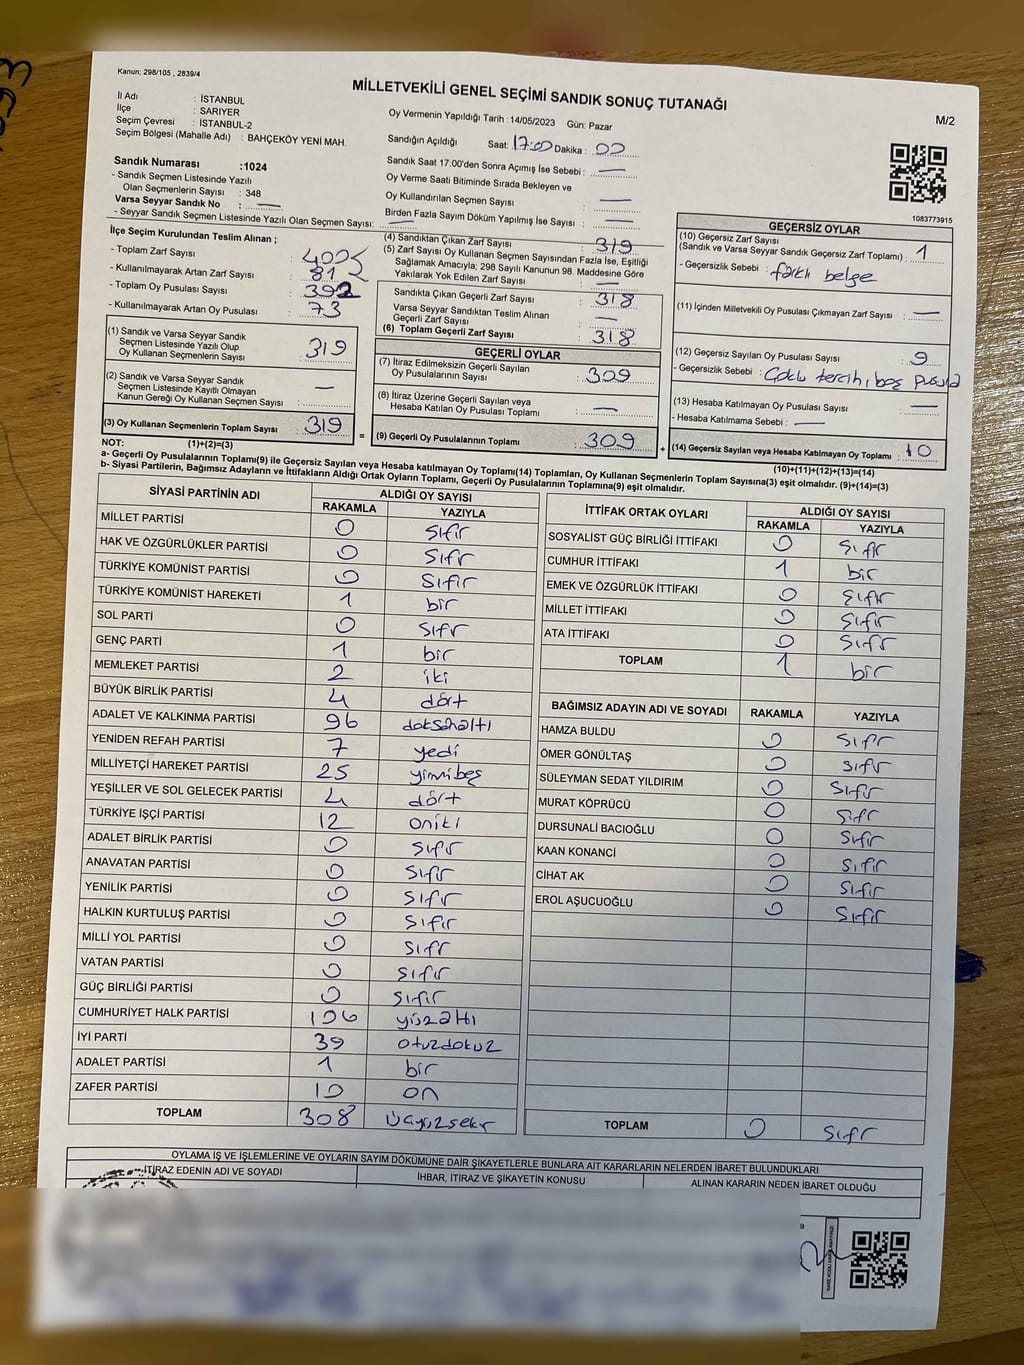 Kanun; 298/105 , 2839/4
MİLLETVEKİLİ GENEL SEÇİMİ SANDIK SONUÇ TUTANAĞI
M/2
İl Adı : İSTANBUL
İlçe : SARIYER
Seçim Çevresi : İSTANBUL-2
Seçim Bölgesi (Mahalle Adı) : BAHÇEKÖY YENİ MAH.
Sandık Numarası :1024
- Sandık Seçmen Listesinde Yazılı
Olan Seçmenlerin Sayısı : 348
Varsa Seyyar Sandık No : —
- Seyyar Sandık Seçmen Listesinde Yazılı Olan Seçmen Sayısı: —
Oy Vermenin Yapıldığı Tarih :14/05/2023 Gün: Pazar
Sandığın Açıldığı Saat: 17:00 Dakika : 00
Sandık Saat 17:00'den Sonra Açımış İse Sebebi : —
Oy Verme Saati Bitiminde Sırada Bekleyen ve
Oy Kullandırılan Seçmen Sayısı : —
Birden Fazla Sayım Döküm Yapılmış İse Sayısı : —
1083773915
İlçe Seçim Kurulundan Teslim Alınan ;
- Toplam Zarf Sayısı : 400
- Kullanılmayarak Artan Zarf Sayısı : 81
- Toplam Oy Pusulası Sayısı : 392
- Kullanılmayarak Artan Oy Pusulası : 73
(1) Sandık ve Varsa Seyyar Sandık
Seçmen Listesinde Yazılı Olup
Oy Kullanan Seçmenlerin Sayısı : 319
(2) Sandık ve Varsa Seyyar Sandık
Seçmen Listesinde Kayıtlı Olmayan
Kanun Gereği Oy Kullanan Seçmen Sayısı : —
(3) Oy Kullanan Seçmenlerin Toplam Sayısı : 319
(4) Sandıktan Çıkan Zarf Sayısı : 319
(5) Zarf Sayısı Oy Kullanan Seçmen Sayısından Fazla İse, Eşitliği
Sağlamak Amacıyla; 298 Sayılı Kanunun 98. Maddesine Göre
Yakılarak Yok Edilen Zarf Sayısı : —
Sandıkta Çıkan Geçerli Zarf Sayısı : 318
Varsa Seyyar Sandıktan Teslim Alınan
Geçerli Zarf Sayısı : —
(6) Toplam Geçerli Zarf Sayısı : 318
GEÇERLİ OYLAR
(7) İtiraz Edilmeksizin Geçerli Sayılan
Oy Pusulalarının Sayısı : 309
(8) İtiraz Üzerine Geçerli Sayılan veya
Hesaba Katılan Oy Pusulası Toplamı : —
= (9) Geçerli Oy Pusulalarının Toplamı : 309
GEÇERSİZ OYLAR
(10) Geçersiz Zarf Sayısı
(Sandık ve Varsa Seyyar Sandık Geçersiz Zarf Toplamı) : 1
- Geçersizlik Sebebi : farklı belge
(11) İçinden Milletvekili Oy Pusulası Çıkmayan Zarf Sayısı : —
(12) Geçersiz Sayılan Oy Pusulası Sayısı : 9
- Geçersizlik Sebebi : Çoklu tercih, boş pusula
(13) Hesaba Katılmayan Oy Pusulası Sayısı : —
- Hesaba Katılmama Sebebi : —
+ (14) Geçersiz Sayılan veya Hesaba Katılmayan Oy Toplamı : 10
NOT: (1)+(2)=(3)
(10)+(11)+(12)+(13)=(14)
a- Geçerli Oy Pusulalarının Toplamı(9) ile Geçersiz Sayılan veya Hesaba katılmayan Oy Toplamı(14) Toplamları, Oy Kullanan Seçmenlerin Toplam Sayısına(3) eşit olmalıdır. (9)+(14)=(3)
b- Siyasi Partilerin, Bağımsız Adayların ve İttifakların Aldığı Ortak Oyların Toplamı, Geçerli Oy Pusulalarının Toplamına(9) eşit olmalıdır.
SİYASİ PARTİNİN ADI ALDIĞI OY SAYISI
RAKAMLA YAZIYLA
MİLLET PARTİSİ 0 sıfır
HAK VE ÖZGÜRLÜKLER PARTİSİ 0 sıfır
TÜRKİYE KOMÜNİST PARTİSİ 0 sıfır
TÜRKİYE KOMÜNİST HAREKETİ 1 bir
SOL PARTİ 0 sıfır
GENÇ PARTİ 1 bir
MEMLEKET PARTİSİ 2 iki
BÜYÜK BİRLİK PARTİSİ 4 dört
ADALET VE KALKINMA PARTİSİ 96 doksanaltı
YENİDEN REFAH PARTİSİ 7 yedi
MİLLİYETÇİ HAREKET PARTİSİ 25 yirmibeş
YEŞİLLER VE SOL GELECEK PARTİSİ 4 dört
TÜRKİYE İŞÇİ PARTİSİ 12 oniki
ADALET BİRLİK PARTİSİ 0 sıfır
ANAVATAN PARTİSİ 0 sıfır
YENİLİK PARTİSİ 0 sıfır
HALKIN KURTULUŞ PARTİSİ 0 sıfır
MİLLİ YOL PARTİSİ 0 sıfır
VATAN PARTİSİ 0 sıfır
GÜÇ BİRLİĞİ PARTİSİ 0 sıfır
CUMHURİYET HALK PARTİSİ 106 yüzaltı
İYİ PARTİ 39 otuzdokuz
ADALET PARTİSİ 1 bir
ZAFER PARTİSİ 10 on
TOPLAM 308 üçyüzsekiz
İTTİFAK ORTAK OYLARI ALDIĞI OY SAYISI
RAKAMLA YAZIYLA
SOSYALİST GÜÇ BİRLİĞİ İTTİFAKI 0 sıfır
CUMHUR İTTİFAKI 1 bir
EMEK VE ÖZGÜRLÜK İTTİFAKI 0 sıfır
MİLLET İTTİFAKI 0 sıfır
ATA İTTİFAKI 0 sıfır
TOPLAM 1 bir
BAĞIMSIZ ADAYIN ADI VE SOYADI RAKAMLA YAZIYLA
HAMZA BULDU 0 sıfır
ÖMER GÖNÜLTAŞ 0 sıfır
SÜLEYMAN SEDAT YILDIRIM 0 sıfır
MURAT KÖPRÜCÜ 0 sıfır
DURSUNALİ BACIOĞLU 0 sıfır
KAAN KONANCİ 0 sıfır
CİHAT AK 0 sıfır
EROL AŞUCUOĞLU 0 sıfır
TOPLAM 0 sıfır
OYLAMA İŞ VE İŞLEMLERİNE VE OYLARIN SAYIM DÖKÜMÜNE DAİR ŞİKAYETLERLE BUNLARA AİT KARARLARIN NELERDEN İBARET BULUNDUKLARI
İTİRAZ EDENİN ADI VE SOYADI İHBAR, İTİRAZ VE ŞİKAYETİN KONUSU ALINAN KARARIN NEDEN İBARET OLDUĞU